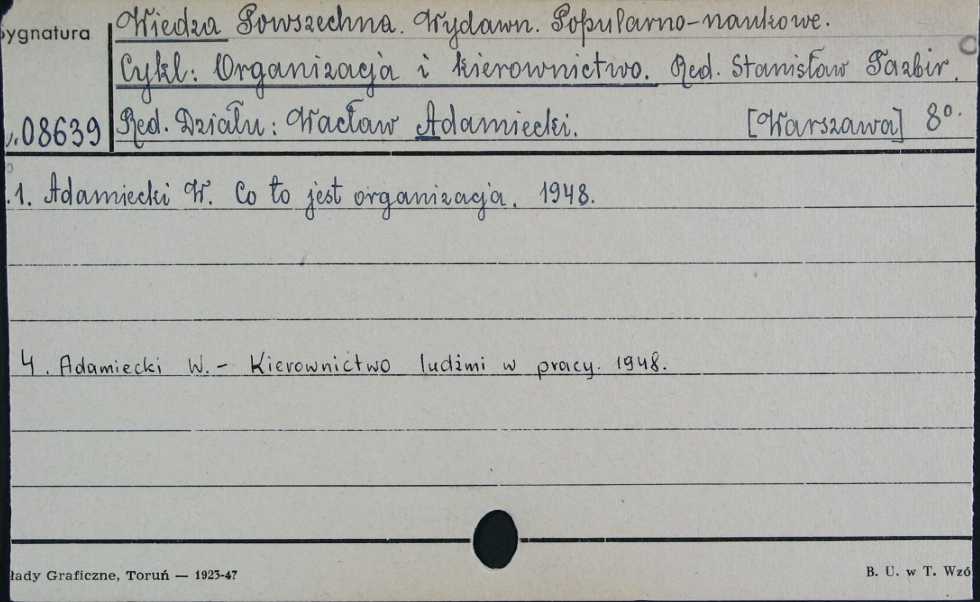 Wiedza Powszechna. Wydawn. Popularno-naukowe.
ygnatura
Cykl: Organizacja i kierownictwo. Red. Stanisław Tazbir.
08639 Red. Działu: Wacław Adamiecki. [Warszawa] 8º.
1. Adamiecki W. Co to jest organizacja. 1948.
4. Adamiecki W. – Kierownictwo ludźmi w pracy. 1948.
łady Graficzne, Toruń — 1923-47
B. U. w T. Wzó